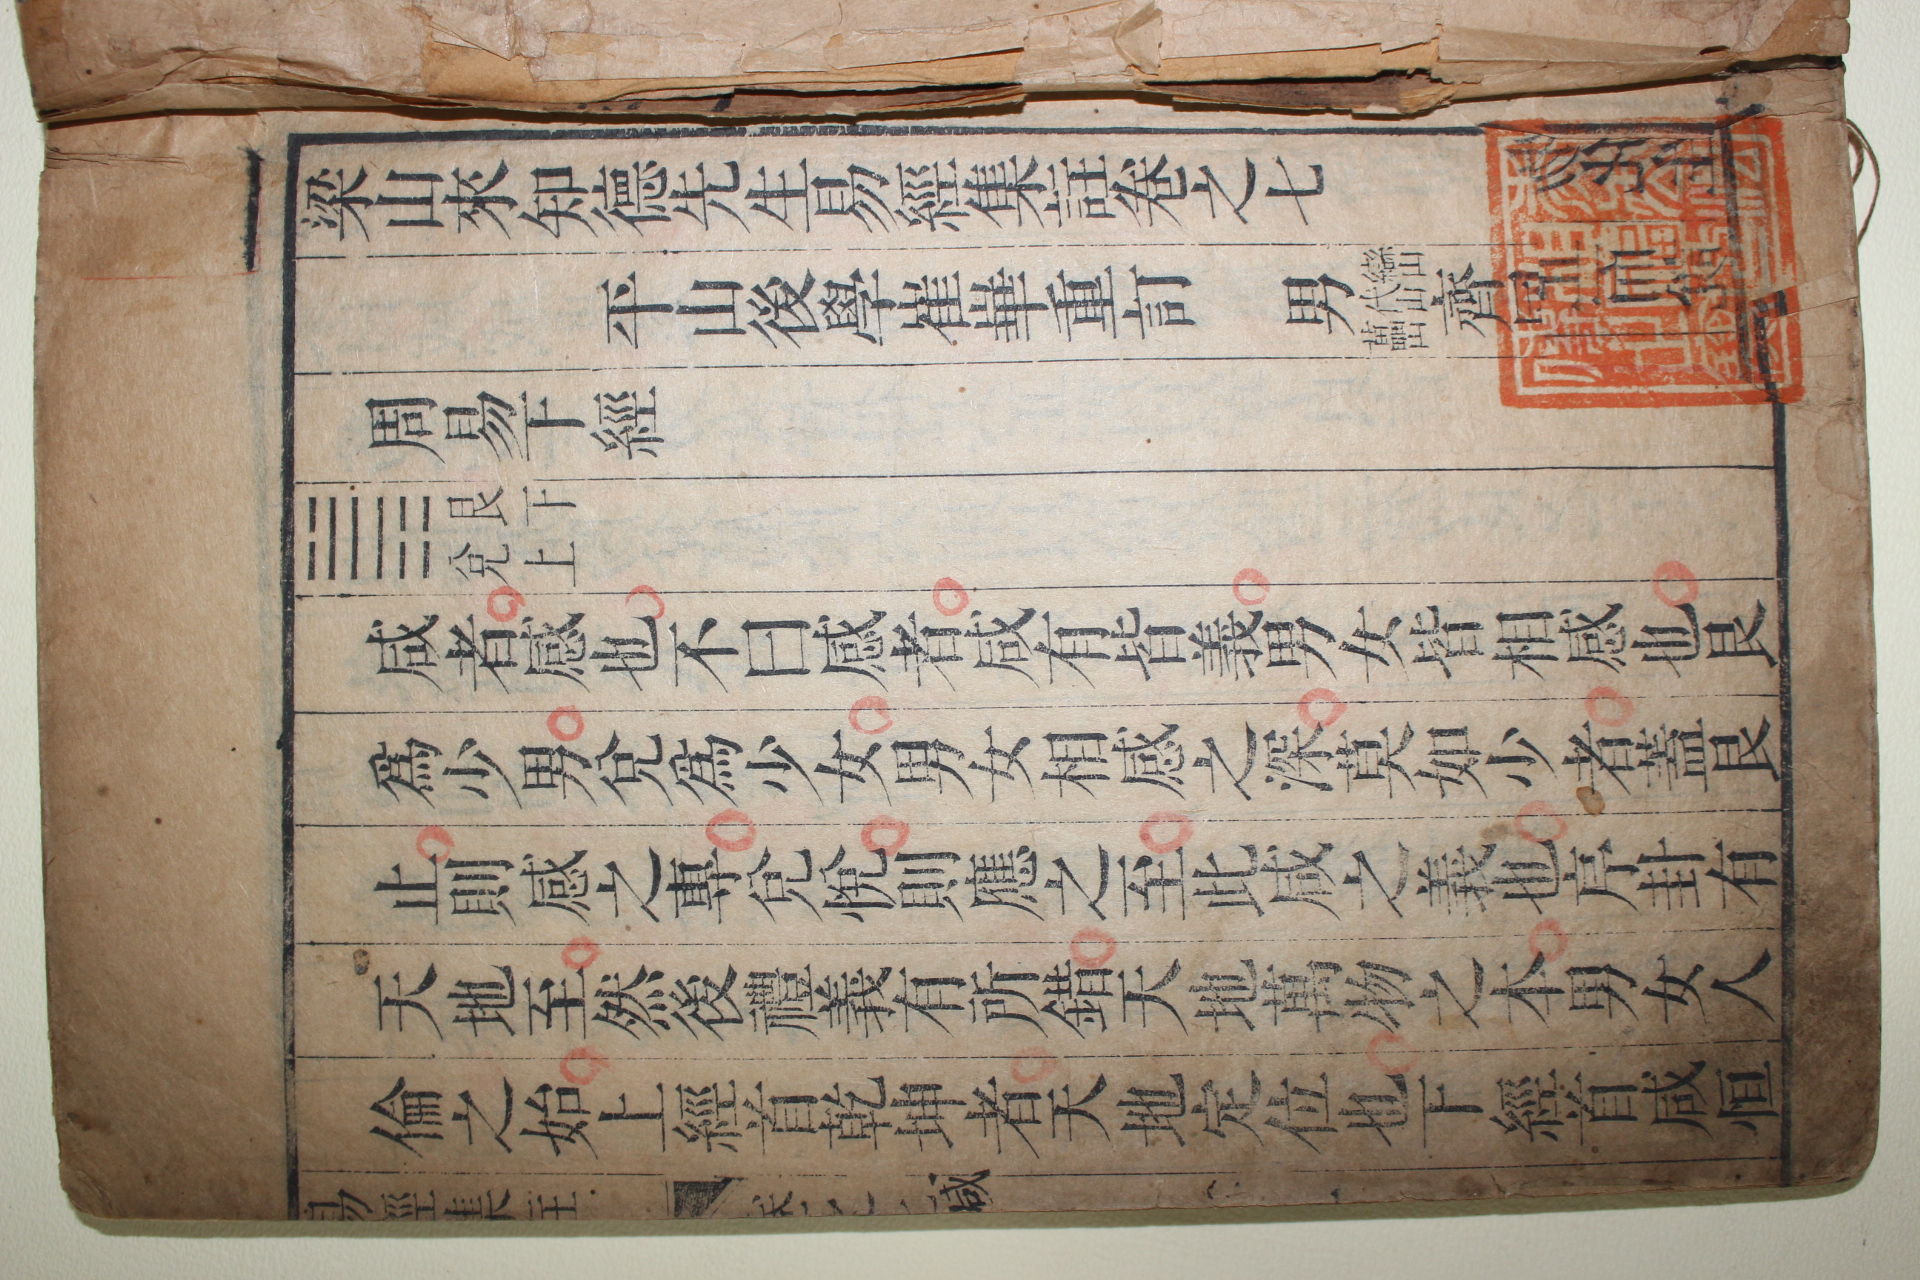 梁山來知德先生易經集註卷之七
平山後學崔華重訂 男 緣山 岱山 齊
周易下經
艮下
兌上
咸者感也不曰感者咸有皆義男女皆相感也艮
爲少男兌爲少女男女相感之深莫如少者蓋艮
止則感之專兌悅則應之至此咸之義也序卦有
天地至然後禮義有所錯天地萬物之本男女人
倫之始上經首乾坤者天地定位也下經首咸恒
易經集註
咸